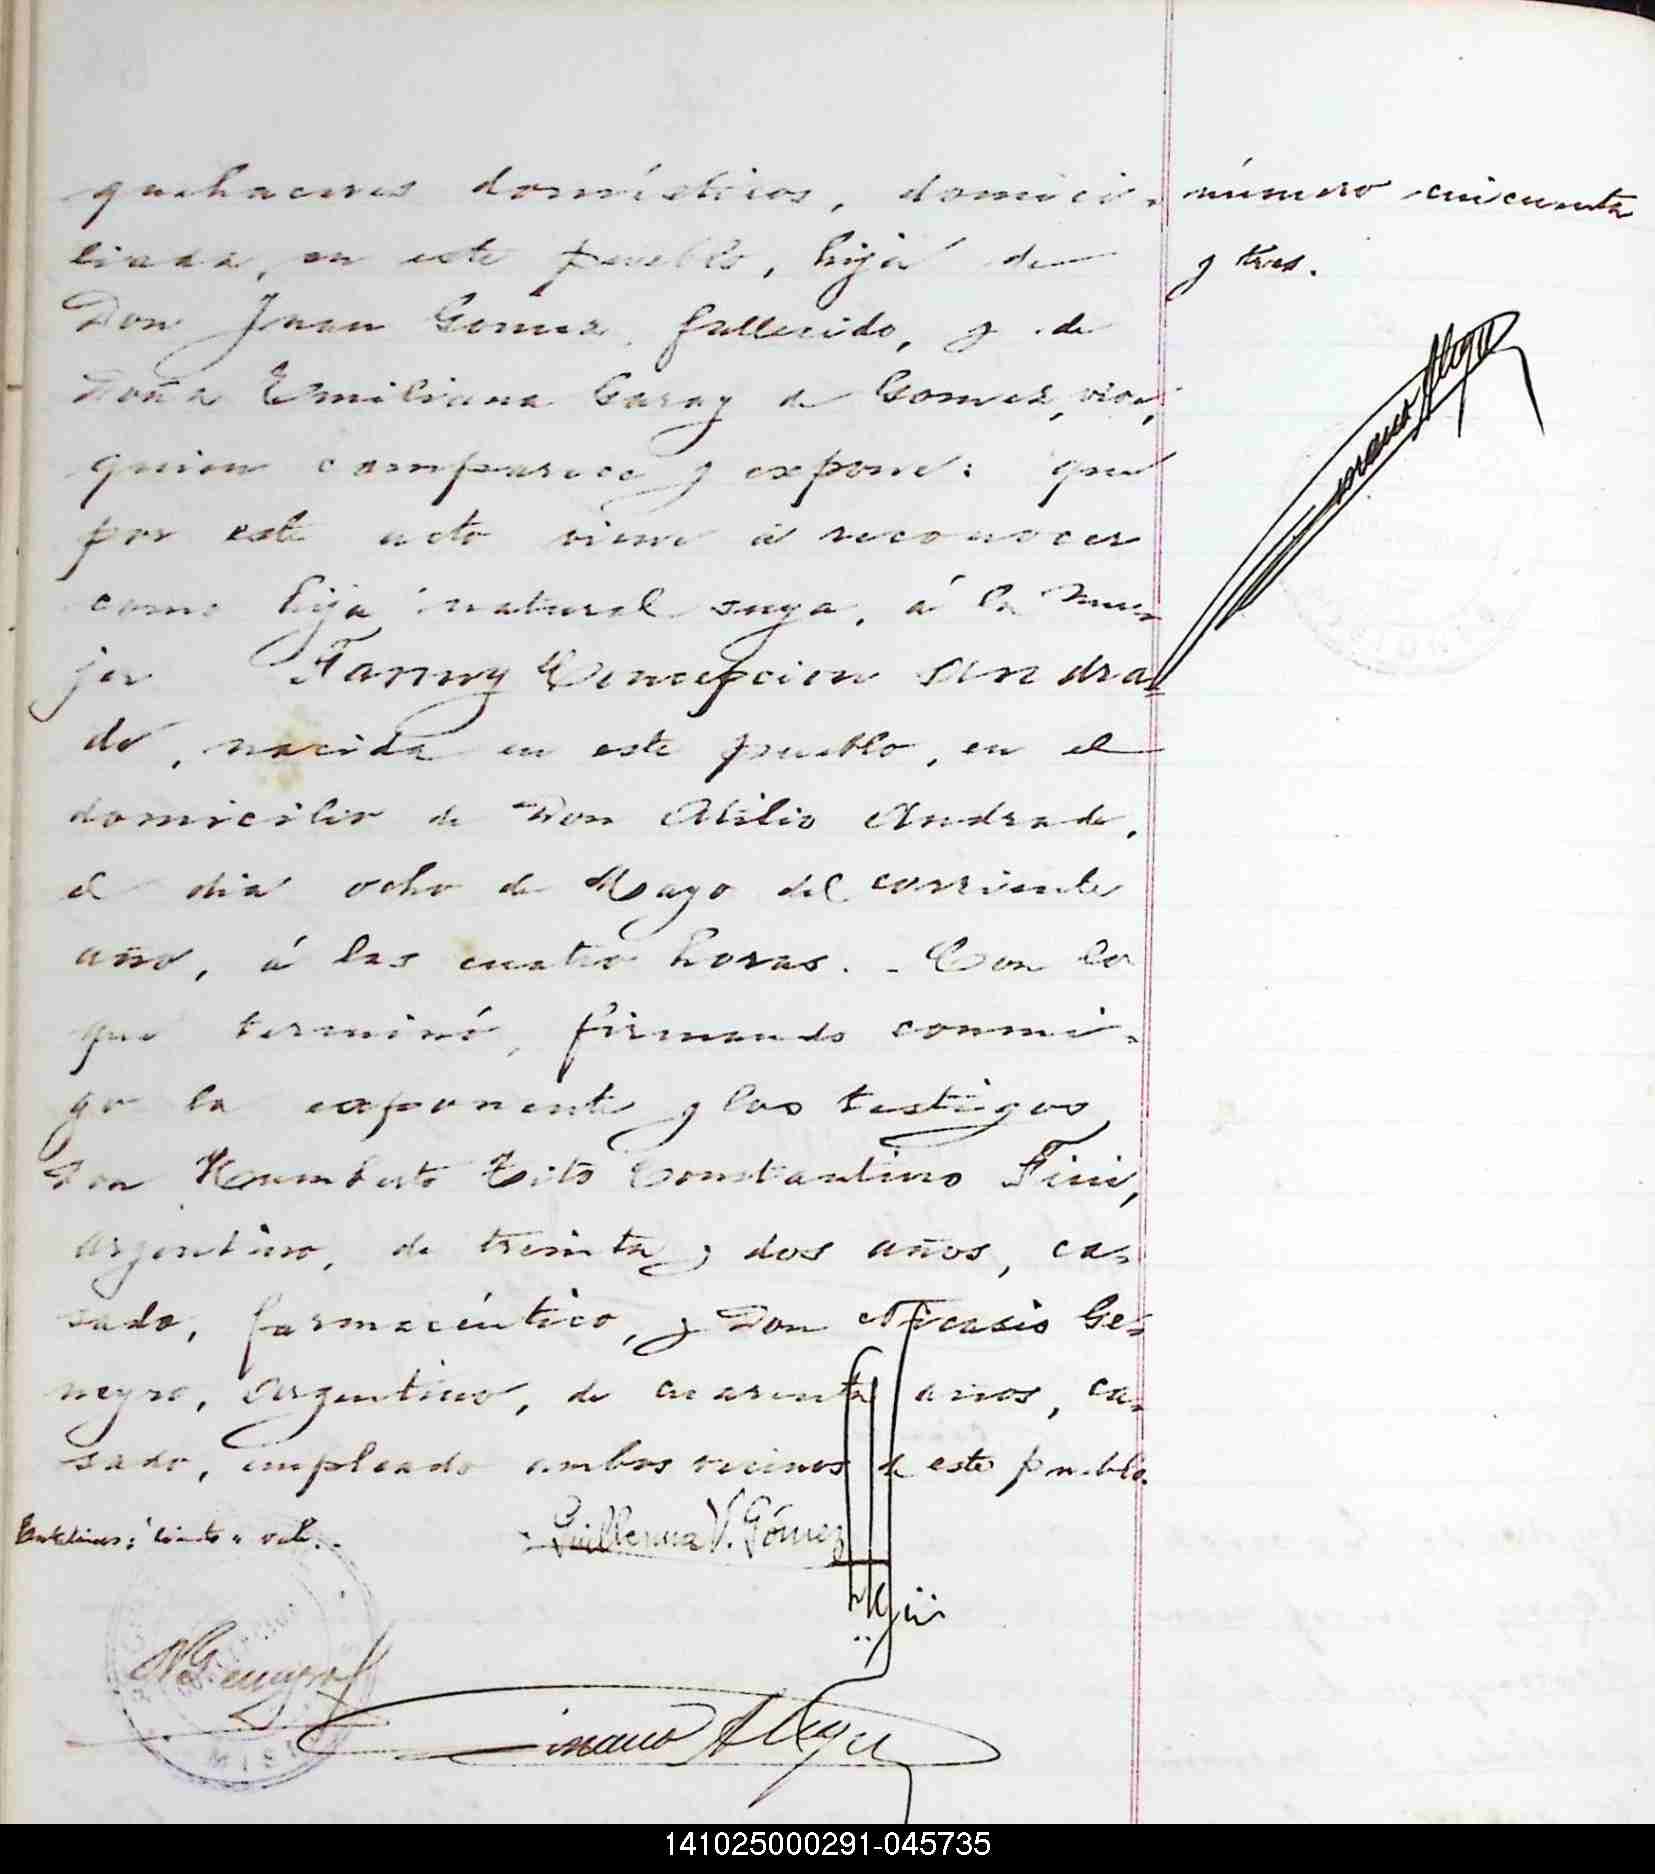 quehaceres domésticos, domici-
liada, en este pueblo, hija de
Don Juan Gomez, fallecido, y de
Doña Emiliana Garay de Gomez, viva,
quien comparece y expone: que
por este acto viene á reconocer
como hija natural suya, á la mu-
jer Fanny Concepcion Andra-
de, nacida en este pueblo, en el
domicilio de Don Atilio Andrade,
el dia ocho de Mayo del corriente
año, á las cuatro horas. - Con lo
que terminó, firmando conmi-
go la exponente y los testigos
Don Humberto Tito Constantino Fini,
argentino, de treinta y dos años, ca-
sado, farmacéutico, y Don Nicasio Ge-
neyro, argentino, de cuarenta años, ca-
sado, empleado ambos vecinos de este pueblo.
Entrelineas: "
vale.
Guillerma V. Gómez
N Geneyro
número cincuenta
y tres.
141025000291-045735